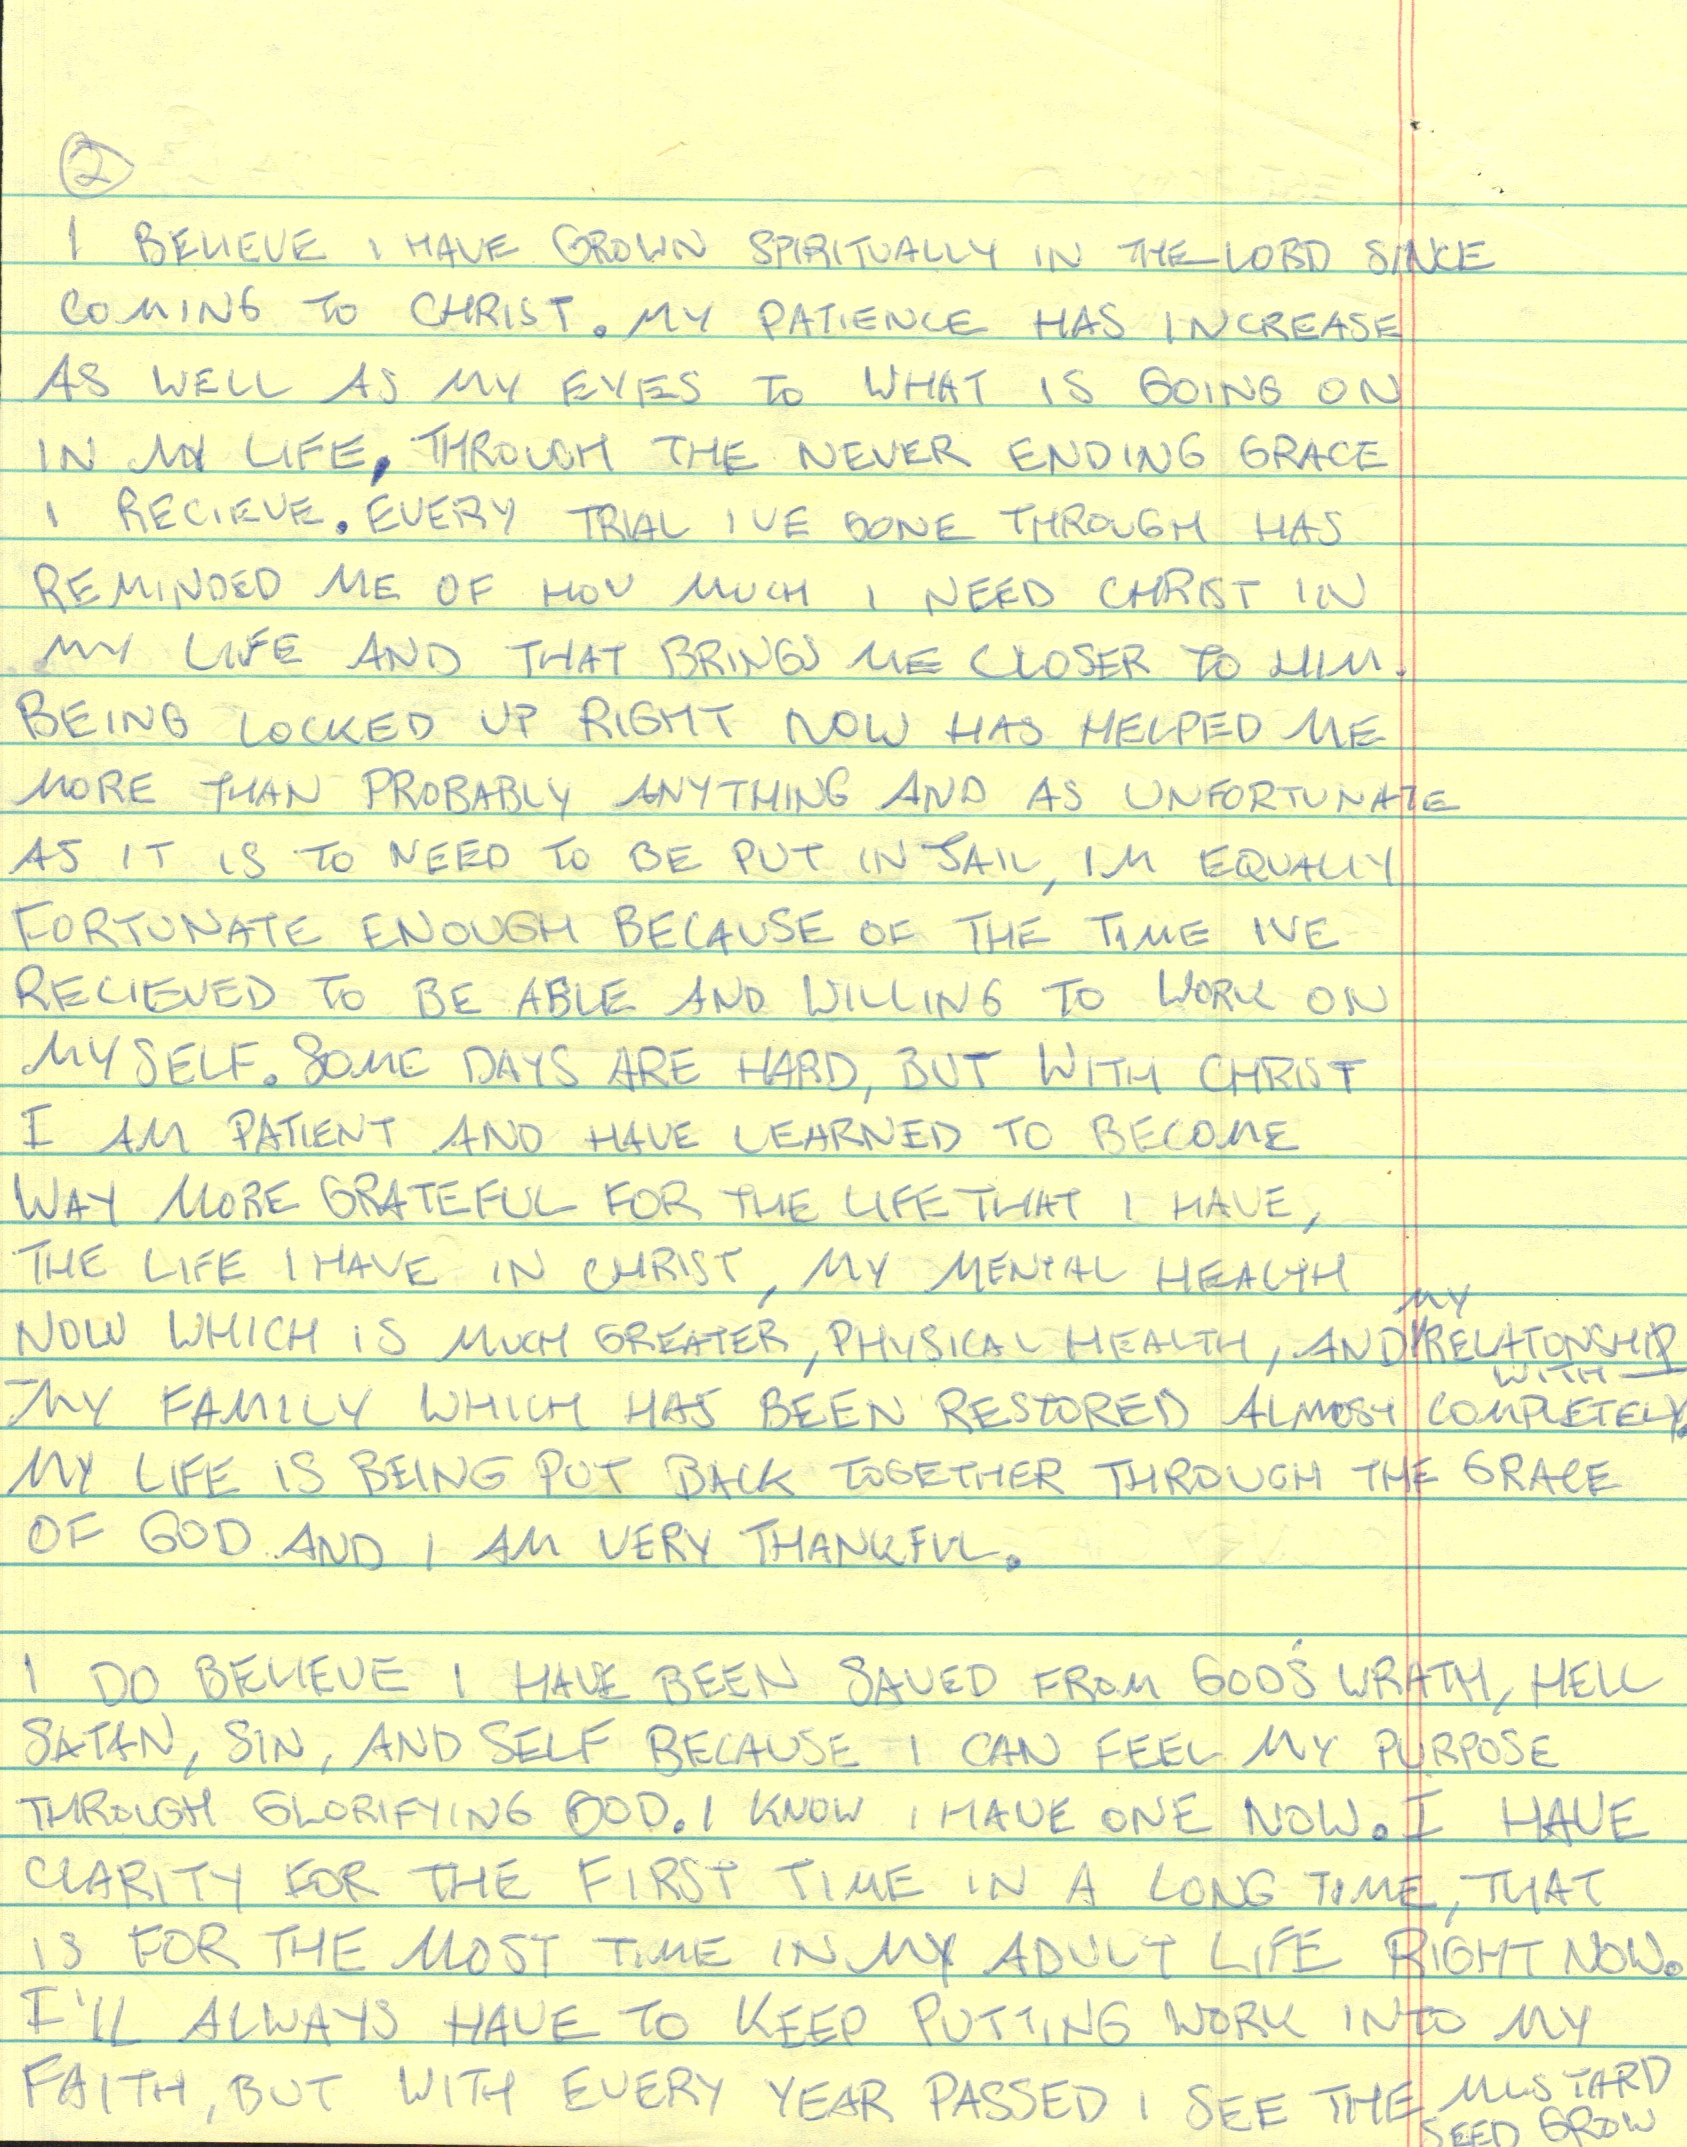 2
I BELIEVE I HAVE GROWN SPIRITUALLY IN THE LORD SINCE
COMING TO CHRIST. MY PATIENCE HAS INCREASE
AS WELL AS MY EYES TO WHAT IS GOING ON
IN MY LIFE, THROUGH THE NEVER ENDING GRACE
I RECIEVE. EVERY TRIAL I'VE GONE THROUGH HAS
REMINDED ME OF HOW MUCH I NEED CHRIST IN
MY LIFE AND THAT BRINGS ME CLOSER TO HIM.
BEING LOCKED UP RIGHT NOW HAS HELPED ME
MORE THAN PROBABLY ANYTHING AND AS UNFORTUNATE
AS IT IS TO NEED TO BE PUT IN JAIL, IM EQUALLY
FORTUNATE ENOUGH BECAUSE OF THE TIME IVE
RECIEVED TO BE ABLE AND WILLING TO WORK ON
MYSELF. SOME DAYS ARE HARD, BUT WITH CHRIST
I AM PATIENT AND HAVE LEARNED TO BECOME
WAY MORE GRATEFUL FOR THE LIFE THAT I HAVE,
THE LIFE I HAVE IN CHRIST, MY MENTAL HEALTH
NOW WHICH IS MUCH GREATER, PHYSICAL HEALTH, AND MY RELATONSHIP
WITH
MY FAMILY WHICH HAS BEEN RESTORED ALMOST COMPLETELY.
MY LIFE IS BEING PUT BACK TOGETHER THROUGH THE GRACE
OF GOD AND I AM VERY THANKFUL.
I DO BELIEVE I HAVE BEEN SAVED FROM GOD'S WRATH, HELL
SATAN, SIN, AND SELF BECAUSE I CAN FEEL MY PURPOSE
THROUGH GLORIFYING GOD. I KNOW I HAVE ONE NOW. I HAVE
CLARITY FOR THE FIRST TIME IN A LONG TIME, THAT
IS FOR THE MOST TIME IN MY ADULT LIFE RIGHT NOW.
I'LL ALWAYS HAVE TO KEEP PUTTING WORK INTO MY
FAITH, BUT WITH EVERY YEAR PASSED I SEE THE MUSTARD
SEED GROW